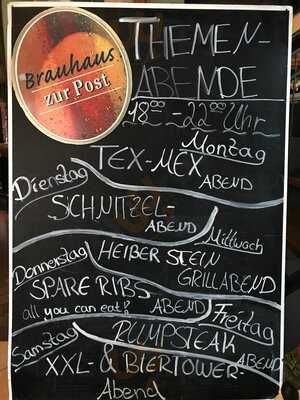 Brauhaus
zur Post
THEMEN-
ABENDE
18:00 - 22:00 Uhr
Montag
TEX-MEX
ABEND
Dienstag
SCHNITZEL-
ABEND
Mittwoch
HEIßER STEIN
GRILLABEND
Donnerstag
SPARE RIBS
all you can eat! ABEND
Freitag
PUMPSTEAK
ABEND
Samstag
XXL- & BIERTOWER-
Abend